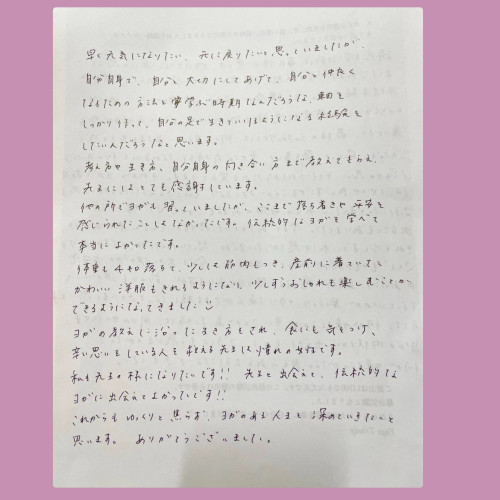 早く元気になりたい、元に戻りたいと思っていましたが、
自分自身で、自分を大切にしてあげて、自分と仲良く
なるための方法を学ぶ時期なんだろうな、軸を
しっかりもって、自分の足で生きていけるようになる経験を
したいんだろうなと思います。
考え方や生き方、自分自身の向き合い方まで教えてもらえ、
先生にはとても感謝しています。
他の所でヨガも習っていましたが、ここまで落ち着きや平安を
感じられたことはなかったです。伝統的なヨガを学べて
本当によかったです。
体重も4キロ落ちて、少しは筋肉もつき、産前に着ていた
かわいい洋服もきれるようになり、少しずつおしゃれも楽しむことが
できるようになってきました
ヨガの教えに沿った生き方をされ、食にも気をつけ、
辛い思いをしている人を救える先生は憧れの女性です。
私も先生の様になりたいです!! 先生と出会えて、伝統的な
ヨガに出会えてよかったです!!
これからもゆっくりと焦らず、ヨガのある人生を深めていきたいと
思います。 ありがとうございました。